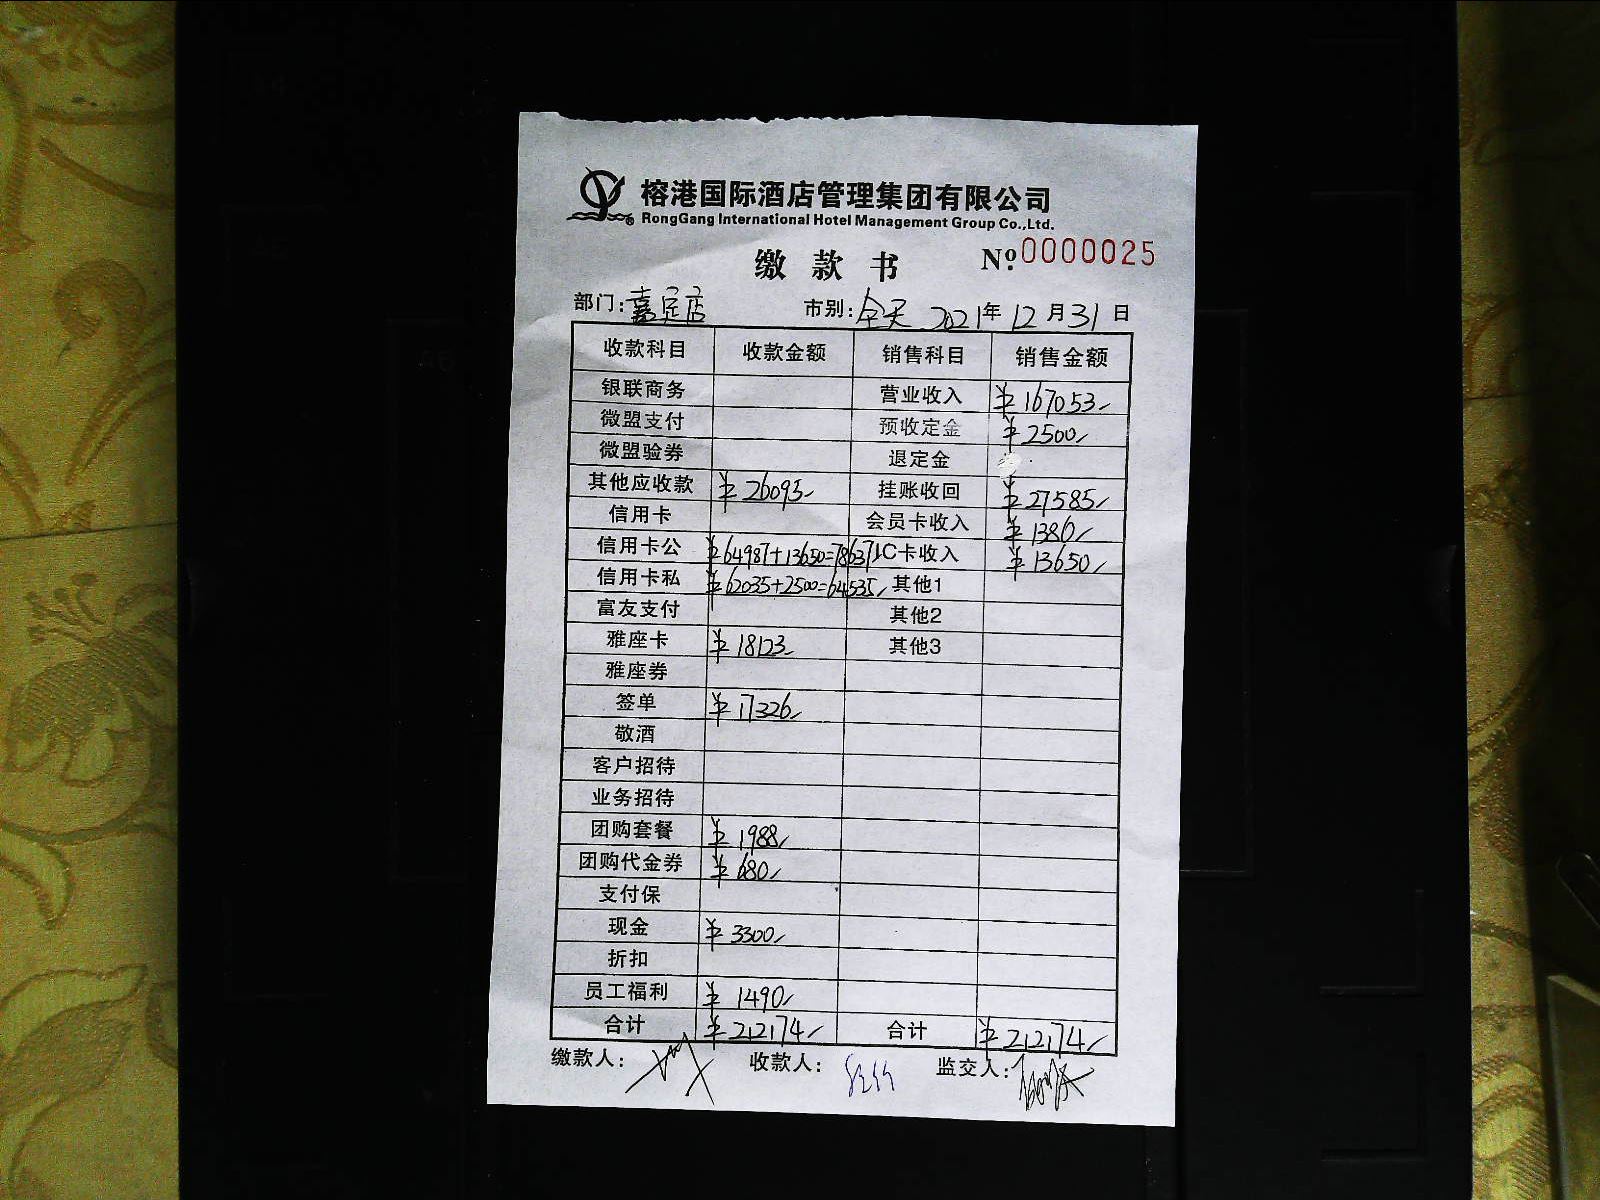 榕港国际酒店管理集团有限公司
RongGang International Hotel Management Group Co.,Ltd.
缴款书 Nº:0000025
部门:嘉定店 市别:全天 2021年12月31日
收款科目 收款金额 销售科目 销售金额
银联商务 营业收入 ¥167053
微盟支付 预收定金 ¥2500
微盟验券 退定金
其他应收款 ¥26095 挂账收回 ¥27585
信用卡 会员卡收入 ¥1380
信用卡公 ¥64987+13650=78637 IC卡收入 ¥13650
信用卡私 ¥62035+2500=64535 其他1
富友支付 其他2
雅座卡 ¥18123 其他3
雅座券
签单 ¥17326
敬酒
客户招待
业务招待
团购套餐 ¥1988
团购代金券 ¥680
支付保
现金 ¥3300
折扣
员工福利 ¥1490
合计 ¥212174 合计 ¥212174
缴款人: 收款人: 监交人: